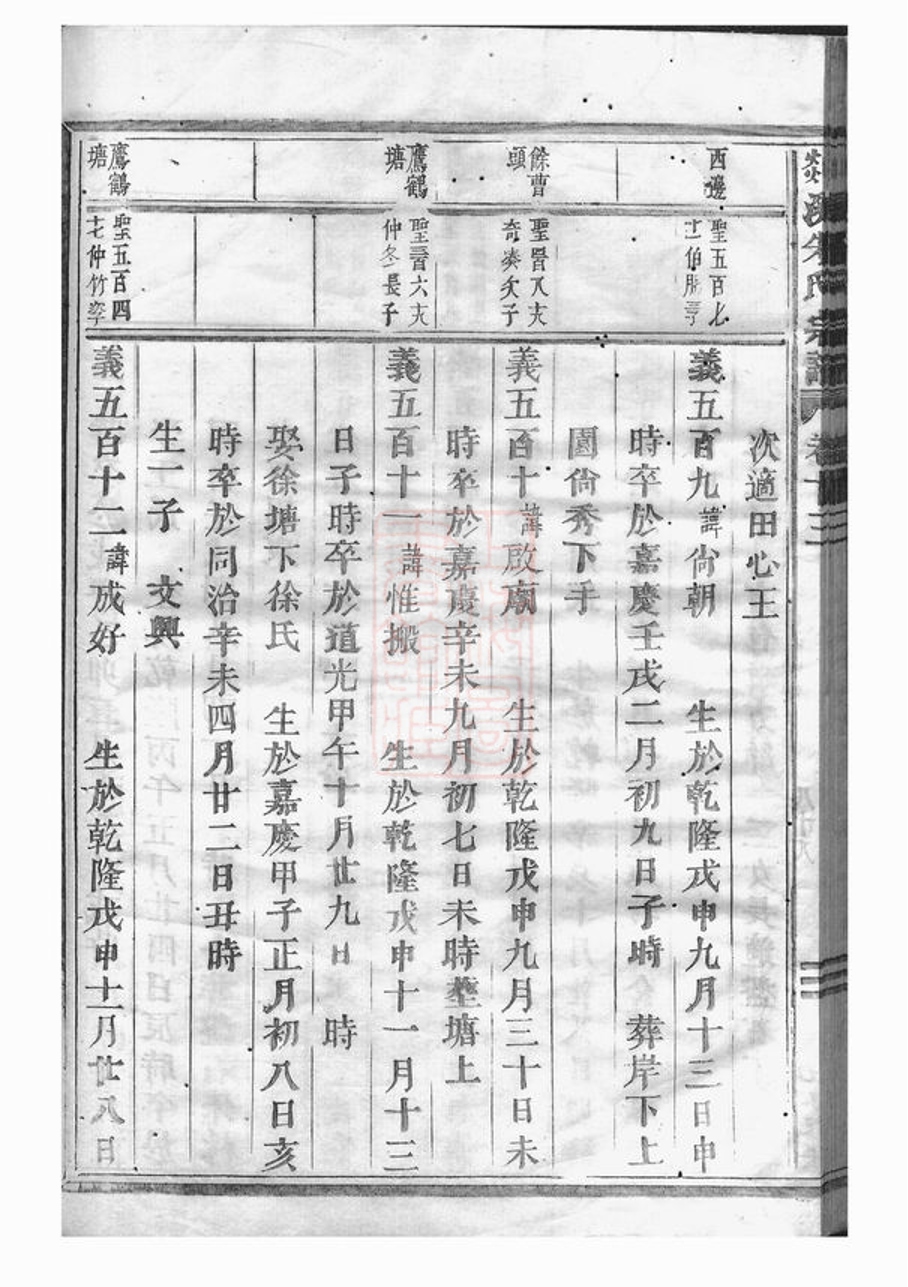 氏宗譜 卷十三
次適田心王
西邊
聖五百七
義五百九諱尙朝 生於乾隆戊申九月十三日申
時卒於嘉慶壬戌二月初九日子時 葬岸下上
園尙秀下手
餘曹
頭
義五百十諱啟廟 生於乾隆戊申九月三十日未
時卒於嘉慶辛未九月初七日未時塟塘上
鷹鶴
塘
仲冬長子
義五百十一諱惟搬 生於乾隆戊申十一月十三
日子時卒於道光甲午十月廿九日 時
娶徐塘下徐氏 生於嘉慶甲子正月初八日亥
時卒於同治辛未四月廿二日丑時
生一子 文興
鷹鶴
塘
聖五百四
十七仲竹
義五百十二諱成好 生於乾隆戊申十二月廿八日